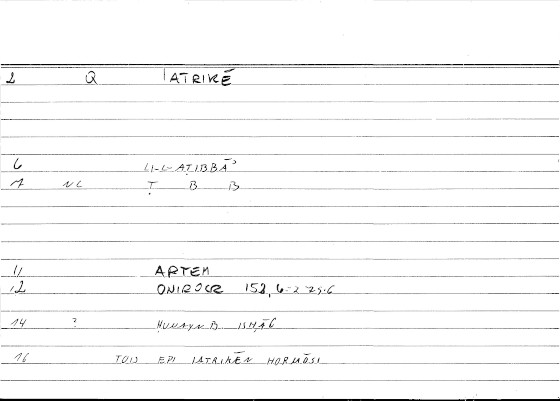 2 Q IATRIKĒ
6 LI-L-AṬIBBĀʾ
7 NC Ṭ B B
11 ARTEM
12 ONIROCR 152, 6-2 25.6
14 ? ḤUNAYN B. ISḤĀḲ
16 TOIS EPI IATRIKĒN HORMŌSI